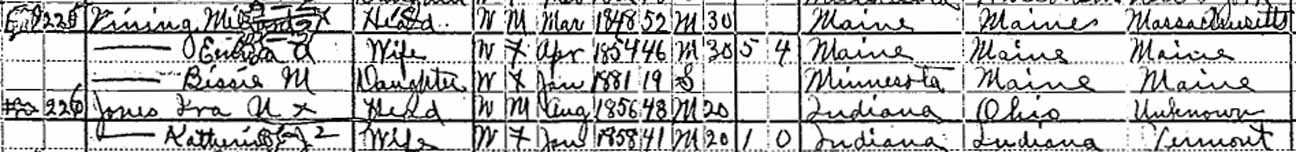 225 Vining, Head W M Mar 1848 52 M 30 Maine Maine Massachusetts
— A Wife W F Apr 1854 46 M 30 5 4 Maine Maine Maine
— Bissie M Daughter W F Jan 1881 19 S Minnesota Maine Maine
226 Jones Ira U x Head W M Aug 1856 48 M 20 Indiana Ohio Unknown
— Wife W F 1858 41 M 20 1 0 Indiana Indiana Vermont